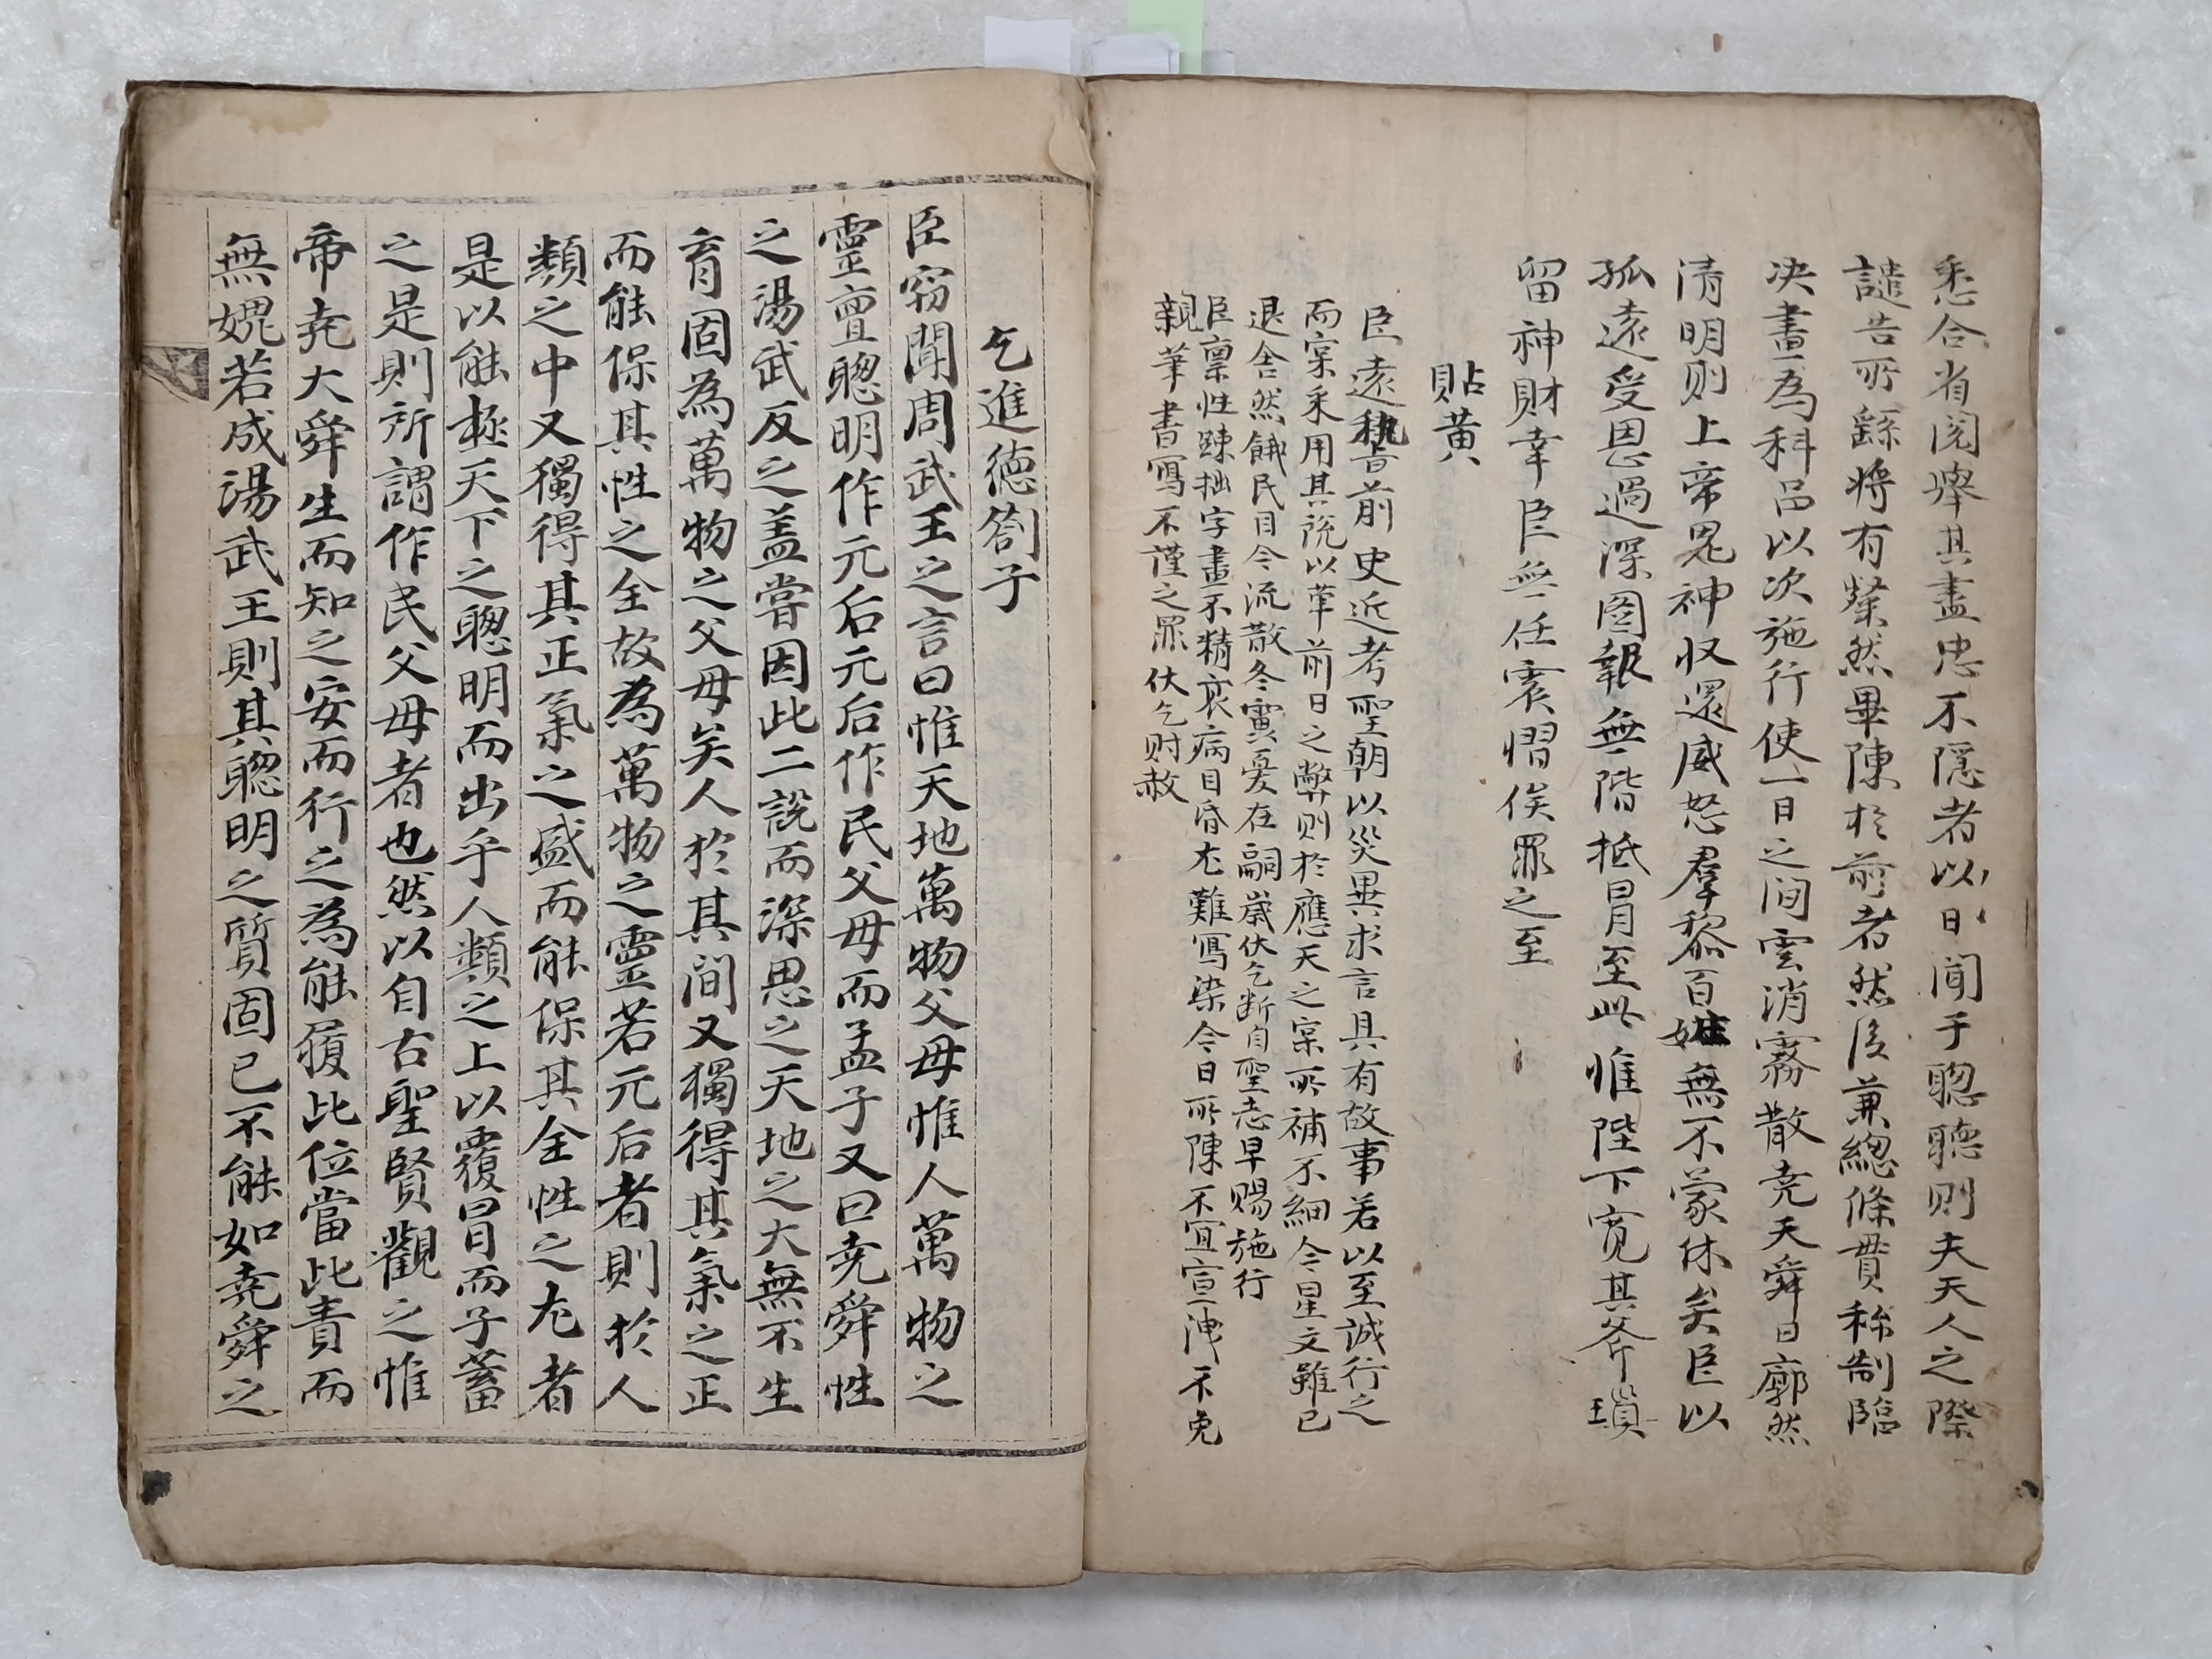 悉合省閱擇其盡忠不隱者以日聞于聰聽則夫天人之際
譴告所繇將有粲然畢陳於前者然後兼總條貫稱制臨
决畫爲科品以次施行使一日之間雲消霧散堯天舜日廓然
清明則上帝鬼神収還威怒羣黎百姓無不蒙休矣臣以
孤遠受恩過深圖報無階抵冒至此惟陛下寬其斧鑕
留神財幸臣無任震慴俟罪之至
貼黃
臣遠稽前史近考聖朝以災異求言具有故事若以至誠行之
而寀采用其說以革前日之弊則於應天之寀所補不細今星文雖已
退舍然餓民目今流散冬雷憂在嗣歲伏乞斷自聖志早賜施行
臣稟性踈拙字畫不精衰病目昏尤難寫染今日所陳不宜宣洩不免
親筆書寫不謹之罪伏乞财赦
乞進德劄子
臣竊聞周武王之言曰惟天地萬物父母惟人萬物之
靈亶聰明作元后元后作民父母而孟子又曰堯舜性
之湯武反之盖嘗因此二說而深思之天地之大無不生
育固為萬物之父母矣人於其間又獨得其氣之正
而能保其性之全故為萬物之靈若元后者則於人
類之中又獨得其正氣之盛而能保其全性之尤者
是以能極天下之聰明而出乎人類之上以覆冒而子蓄
之是則所謂作民父母者也然以自古聖賢觀之惟
帝堯大舜生而知之安而行之為能履此位當此責而
無媿若成湯武王則其聰明之質固已不能如堯舜之